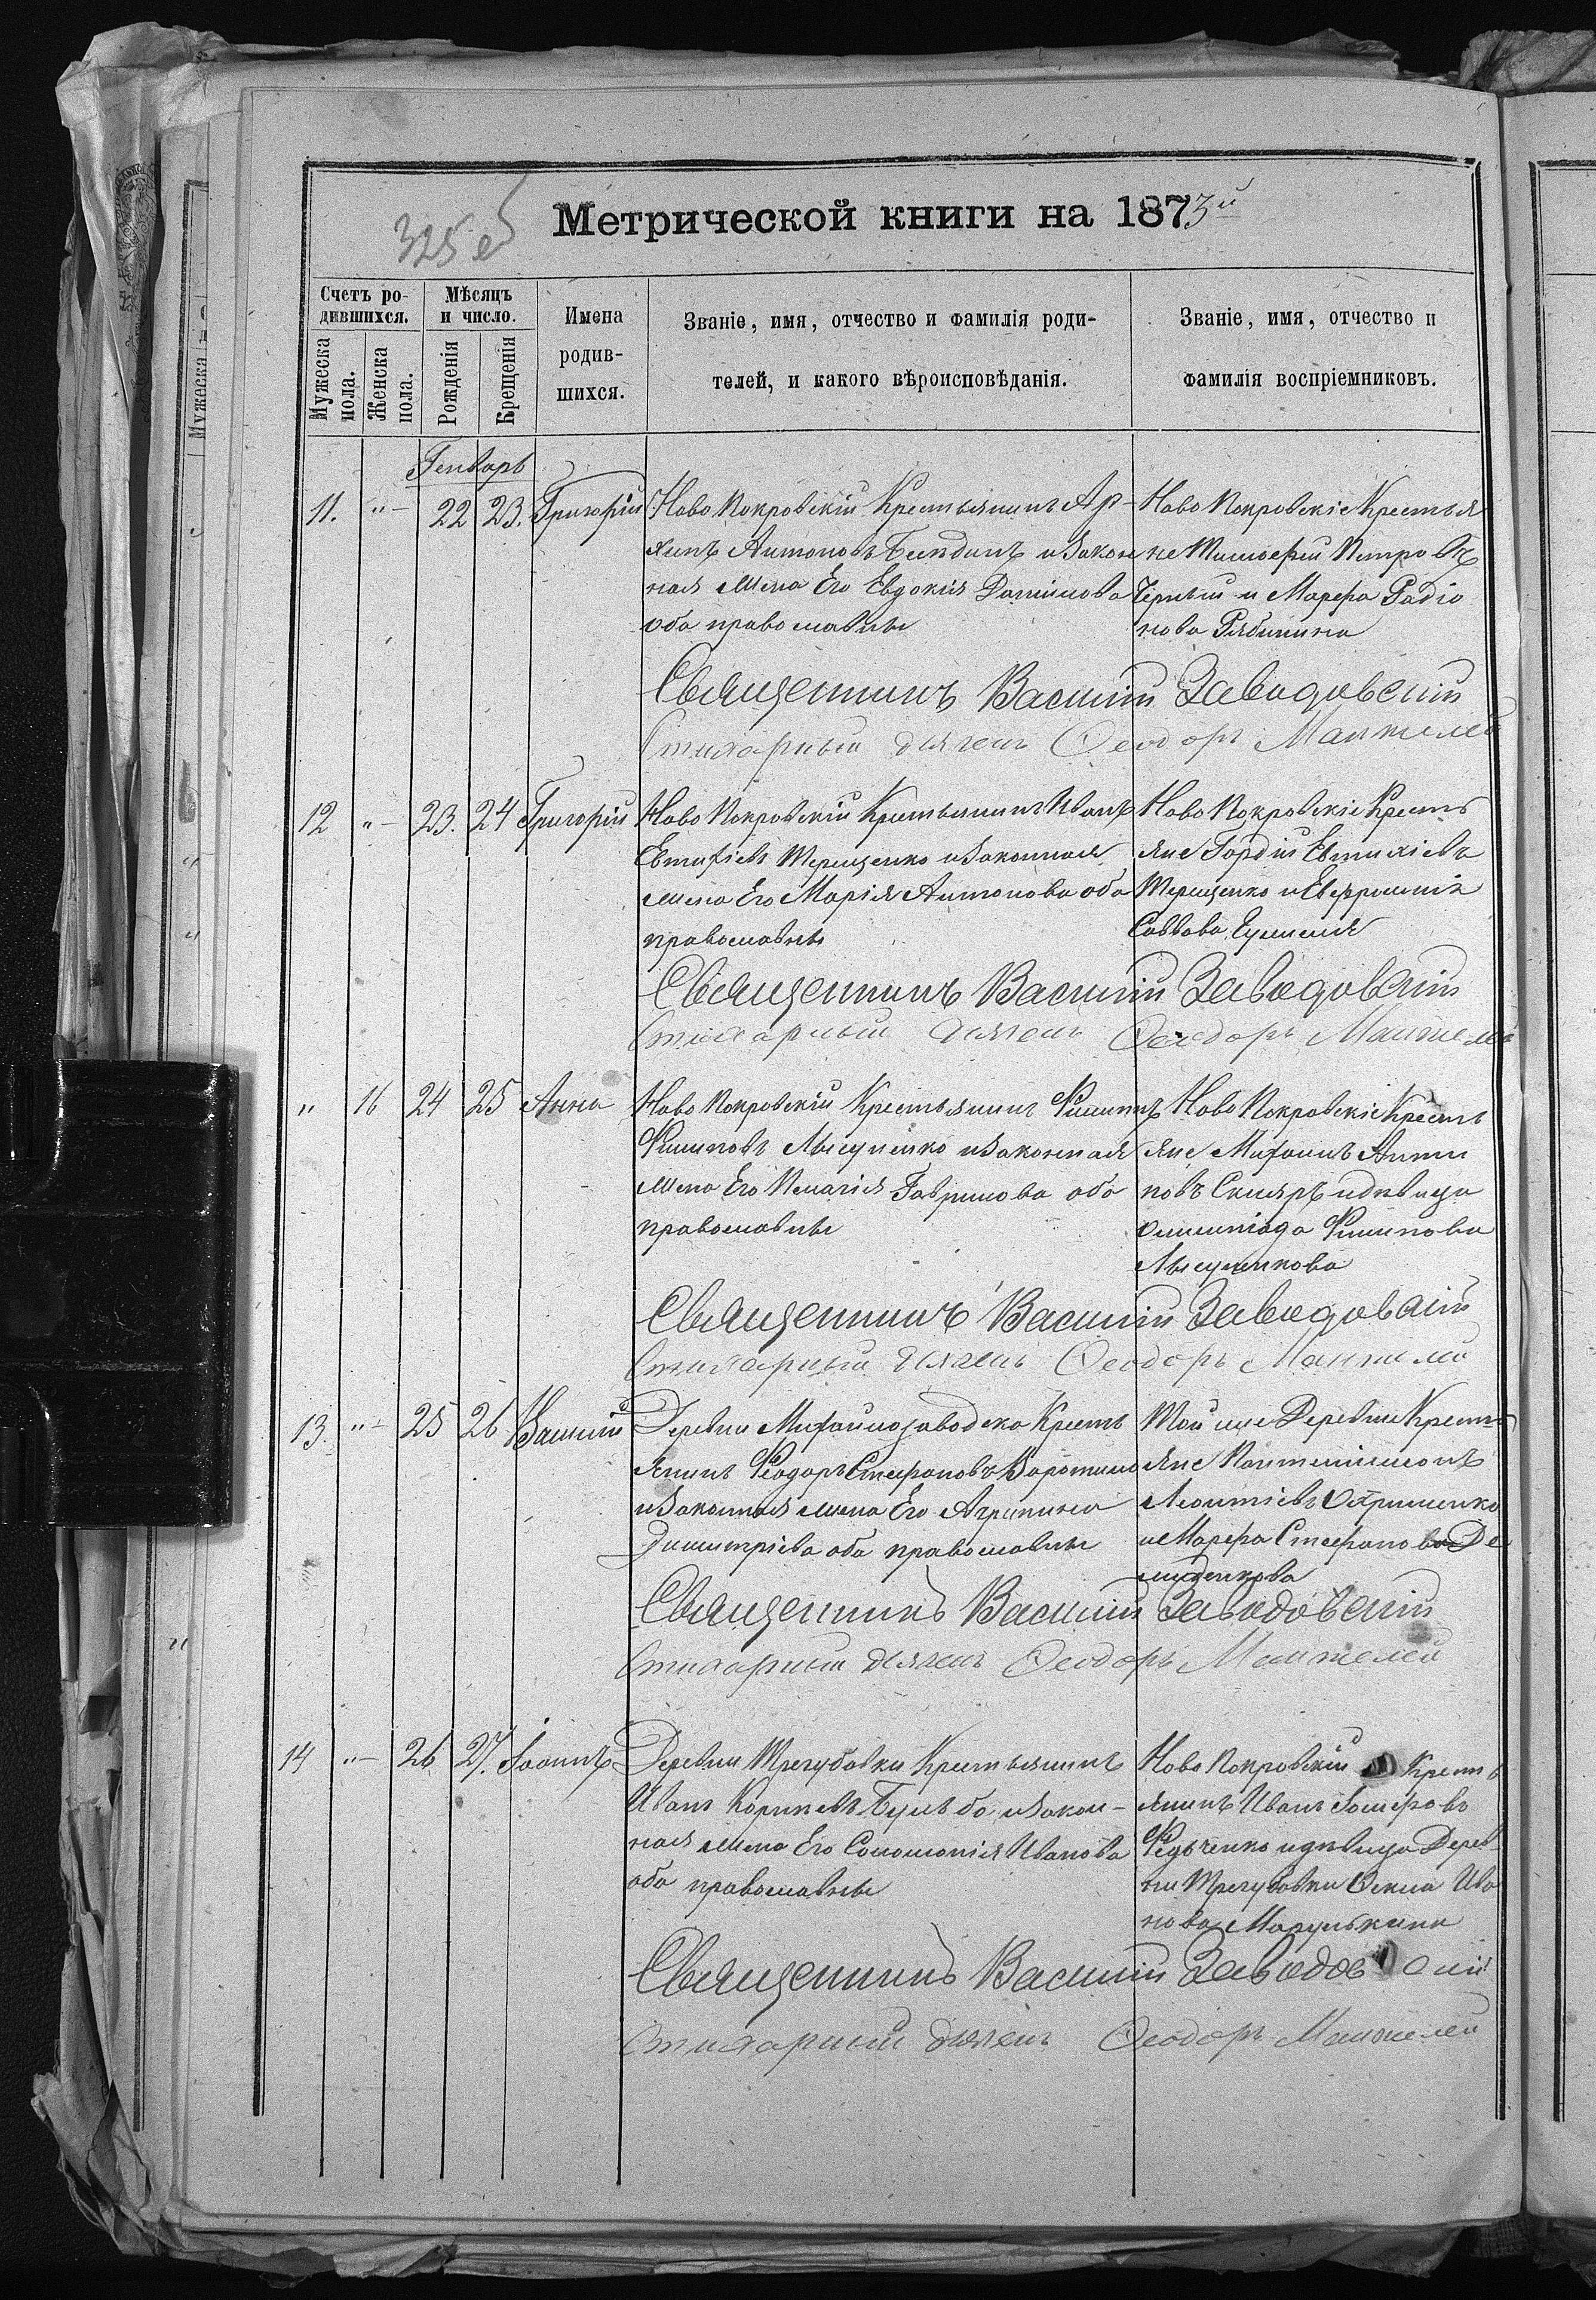 325 об
Метрической книги на 1873й
Счетъ ро-
дившихся.
Мужеска
пола.
Женска
пола.
Мѣсяцъ
и число.
Рожденія
Крещенія
Имена
родив-
шихся.
Званіе, имя, отчество и фамилія роди-
телей, и какого вѣроисповѣданія.
Званіе, имя, отчество и
фамилія воспріемниковъ.
Генварь
11. "- 22 23. Григорій
Ново Покровскій Крестьянинъ Ар-
хипъ Антоновъ и закон
ная жена Его Евдокія Данiилова
оба православны
Ново Покровскіе Крестья
не Тимофей Петровъ
Чорный и Марфа Радіо
нова Рябинина
Священникъ Василій Заводовскій
Стихарный дьячекъ Ѳеодоръ Манжелей
12 "- 23. 24 Григорій
Ново Покровскій Крестьянинъ Иванъ
Евтихіевъ Терещенко и законная
жена Его Марія Антонова оба
православны
Ново Покровскіе Кресть
яне Гордій Евтихіевъ
Терещенко и Евфросинія
Саввова
Священникъ Василій Заводовскій
Стихарный дьячекъ Ѳеодоръ Манжелей
" 16 24 25 Анна
Ново Покровскій Крестьянинъ Филипъ
Филиповъ Лысученко и законная
жена Его Пелагія Гаврилова оба
православны
Ново Покровскіе Кресть
яне Михаилъ Анти
повъ Скляръ и дѣвица
Олимпіада Филипова
Лысученкова
Священникъ Василій Заводовскій
Стихарный дьячекъ Ѳеодоръ Манжелей
13. "- 25 26 Василій
Деревни Михайлозаводска Кресть
янинъ Ѳеодоръ Стефановъ
и законная жена Его Агрипина
Димитріева оба православны
Той же Деревни Кресть
яне Пантелеимонъ
Леонтіевъ Охрименко
и Марфа Стефанова Де
миденкова
Священникъ Василій Заводовскій
Стихарный дьячекъ Ѳеодоръ Манжелей
14 "- 26 27. Іоаннъ
Деревни Трегубовки Крестьянинъ
Иванъ Карпъевъ Бульба и закон-
ная жена Его Соломонія Иванова
оба православны
Ново Покровскій Кресть
янинъ Иванъ
Федченко и дѣвица Дерев-
ни Трегубовки Ѳекла Ива
нова
Священникъ Василій Заводовскій
Стихарный дьячекъ Ѳеодоръ Манжелей
Мужеска